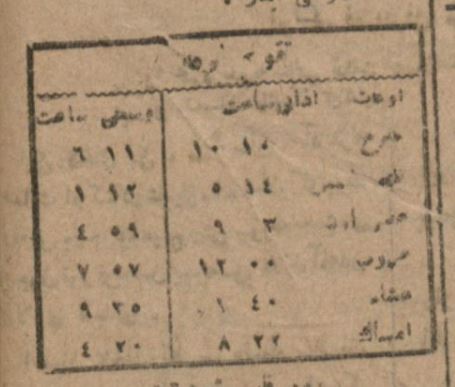 اوقات اذانی ساعت وسطی ساعت
١٥ ١٠ ١١ ٦
ظهر ١٤ ٥ ١٢ ١
٣ ٩ ٥٩ ٤
غروب ٠٠ ١٢ ٥٧ ٧
عشاء ٤٠ ١ ٣٥ ٩
امساك ٢٢ ٨ ٢٠ ٤